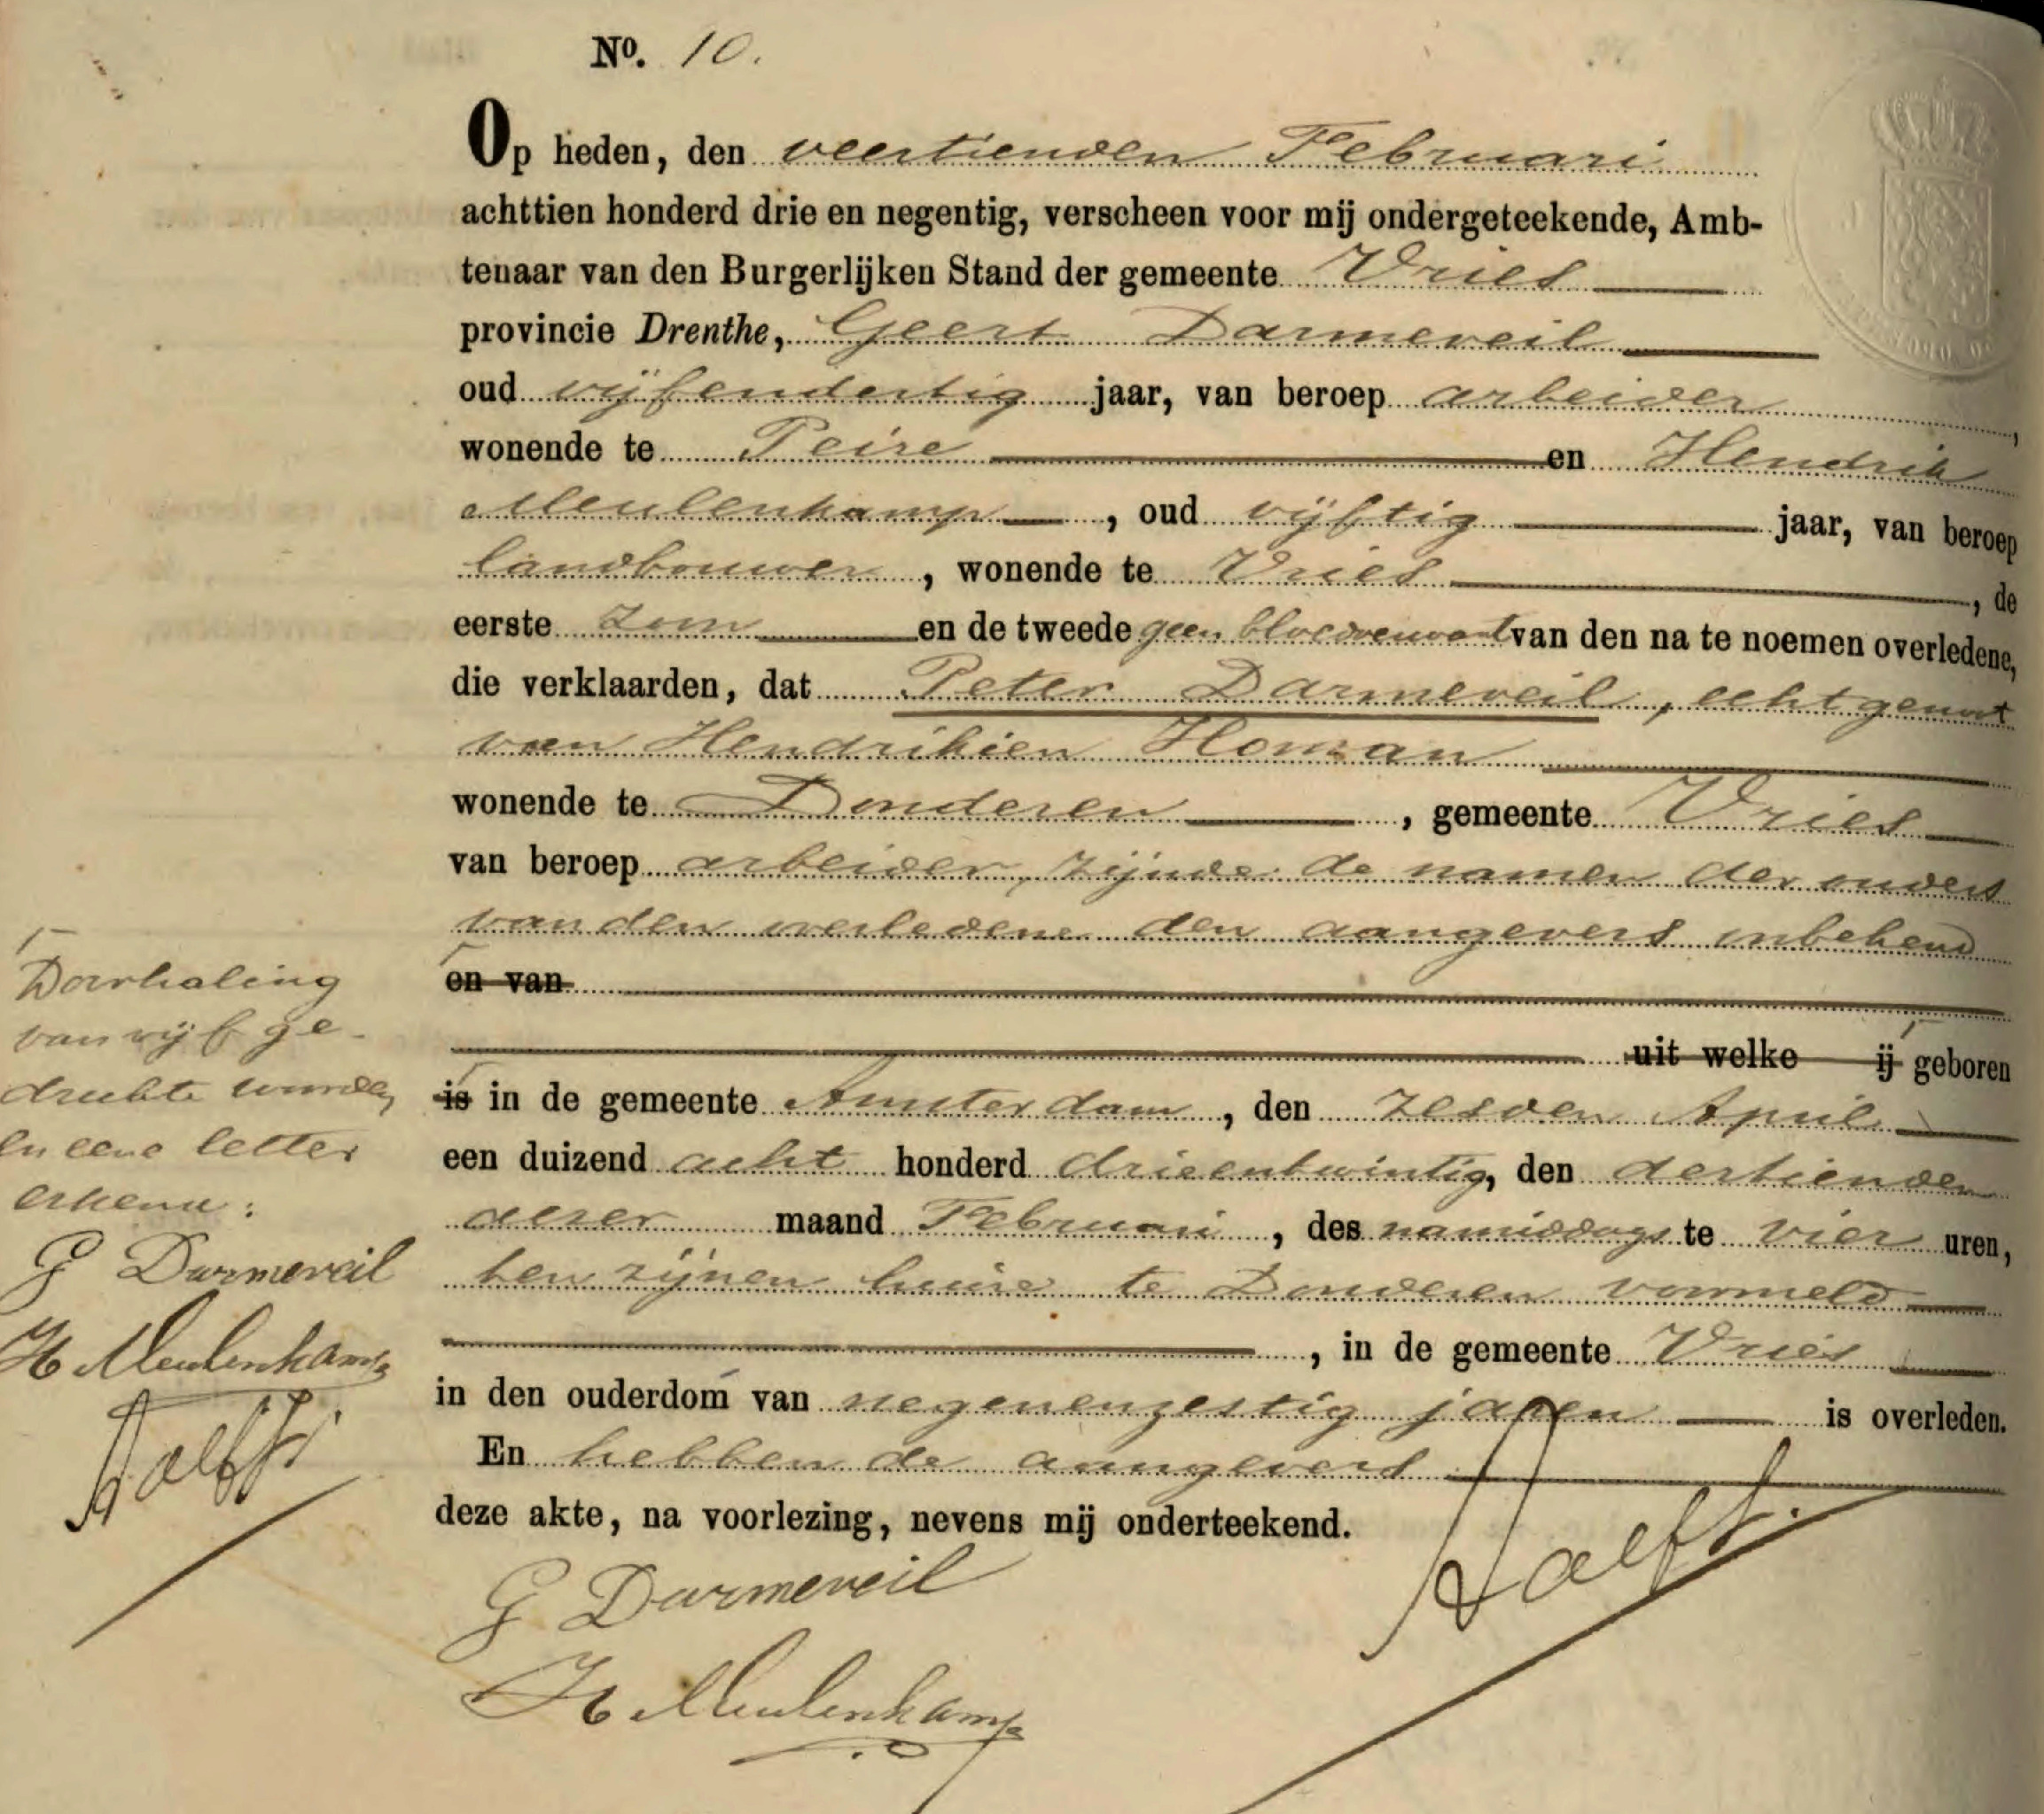 No. 10.
Op heden, den veertienden Februari
achttien honderd drie en negentig, verscheen voor mij ondergeteekende, Amb-
tenaar van den Burgerlijken Stand der gemeente Vries
provincie Drenthe, Geert Darmeveil
oud vijfendertig jaar, van beroep arbeider,
wonende te Peize en Hendrik
Meulenkamp, oud vijftig jaar, van beroep
landbouwer, wonende te Vries, de
eerste zoon en de tweede geen bloedverwant van den na te noemen overledene,
die verklaarden, dat Peter Darmeveil, echtgenoot
van Hendrikien Homan
wonende te Donderen, gemeente Vries
van beroep arbeider, zijnde de namen der ouders
van den overledene den aangevers onbekend
en van
uit welke ij geboren
is in de gemeente Amsterdam, den zesden April
een duizend acht honderd drieentwintig, den dertienden
dezer maand Februari, des namiddags te vier uren,
ten zijnen huize te Donderen voormeld
, in de gemeente Vries
in den ouderdom van negenenzestig jaren is overleden.
En hebben de aangevers
deze akte, na voorlezing, nevens mij onderteekend.
G Darmeveil
H Meulenkamp
Doorhaling
van vijf ge-
drukte woorden
en eene letter
erkend:
G Darmeveil
H Meulenkamp